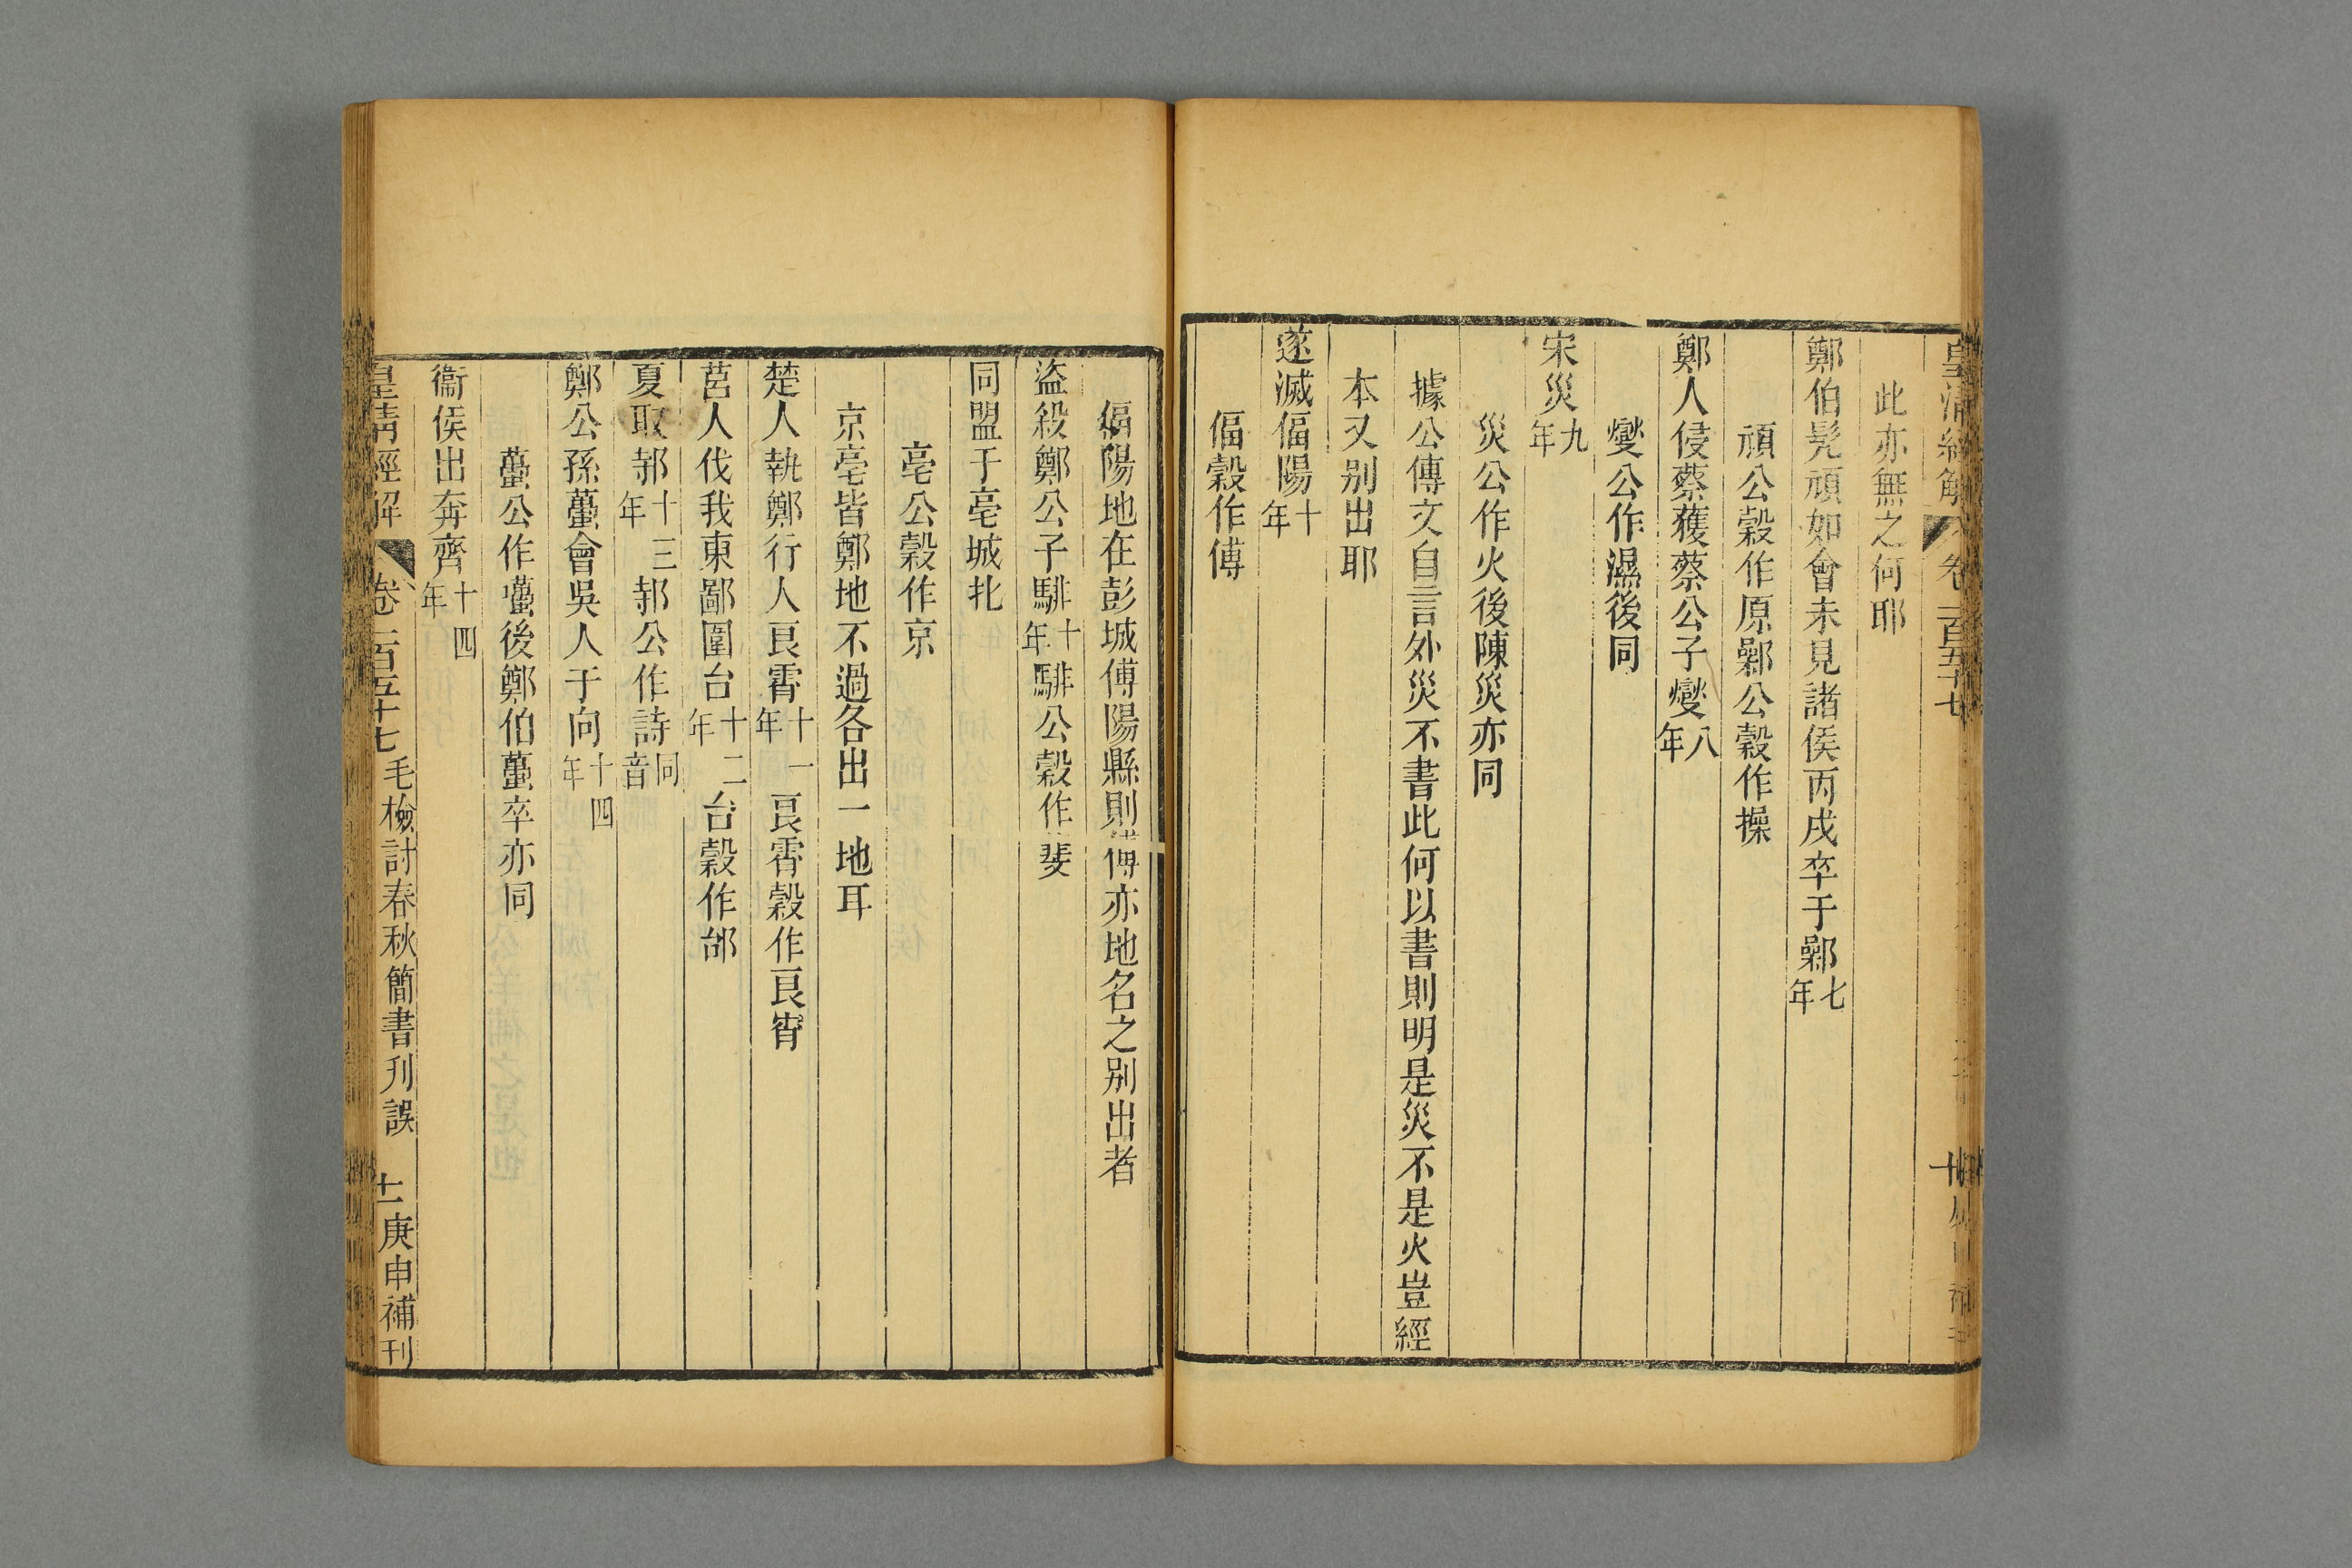 皇清經解 卷一百五十七
此亦無之何耶
鄭伯髠頑如會未見諸侯丙戌卒于鄵七年
頑公穀作原鄵公穀作操
鄭人侵蔡獲蔡公子燮八年
燮公作濕後同
宋災九年
災公作火後陳災亦同
據公傳文自言外災不書此何以書則明是災不是火豈經
本又别出耶
遂滅偪陽十年
偪穀作傅
偪陽地在彭城傅陽縣則傅亦地名之别出者
盜殺鄭公子騑十年騑公穀作斐
同盟于亳城北
亳公穀作京
京亳皆鄭地不過各出一地耳
楚人執鄭行人良霄十一年良霄穀作良宵
莒人伐我東鄙圍台十二年台穀作邰
夏取邿十三年邿公作詩同音
鄭公孫蠆會吳人于向十四年
蠆公作囆後鄭伯蠆卒亦同
衞侯出奔齊十四年
皇清經解 卷一百五十七 毛檢討春秋簡書刋誤 十一 庚申補刊